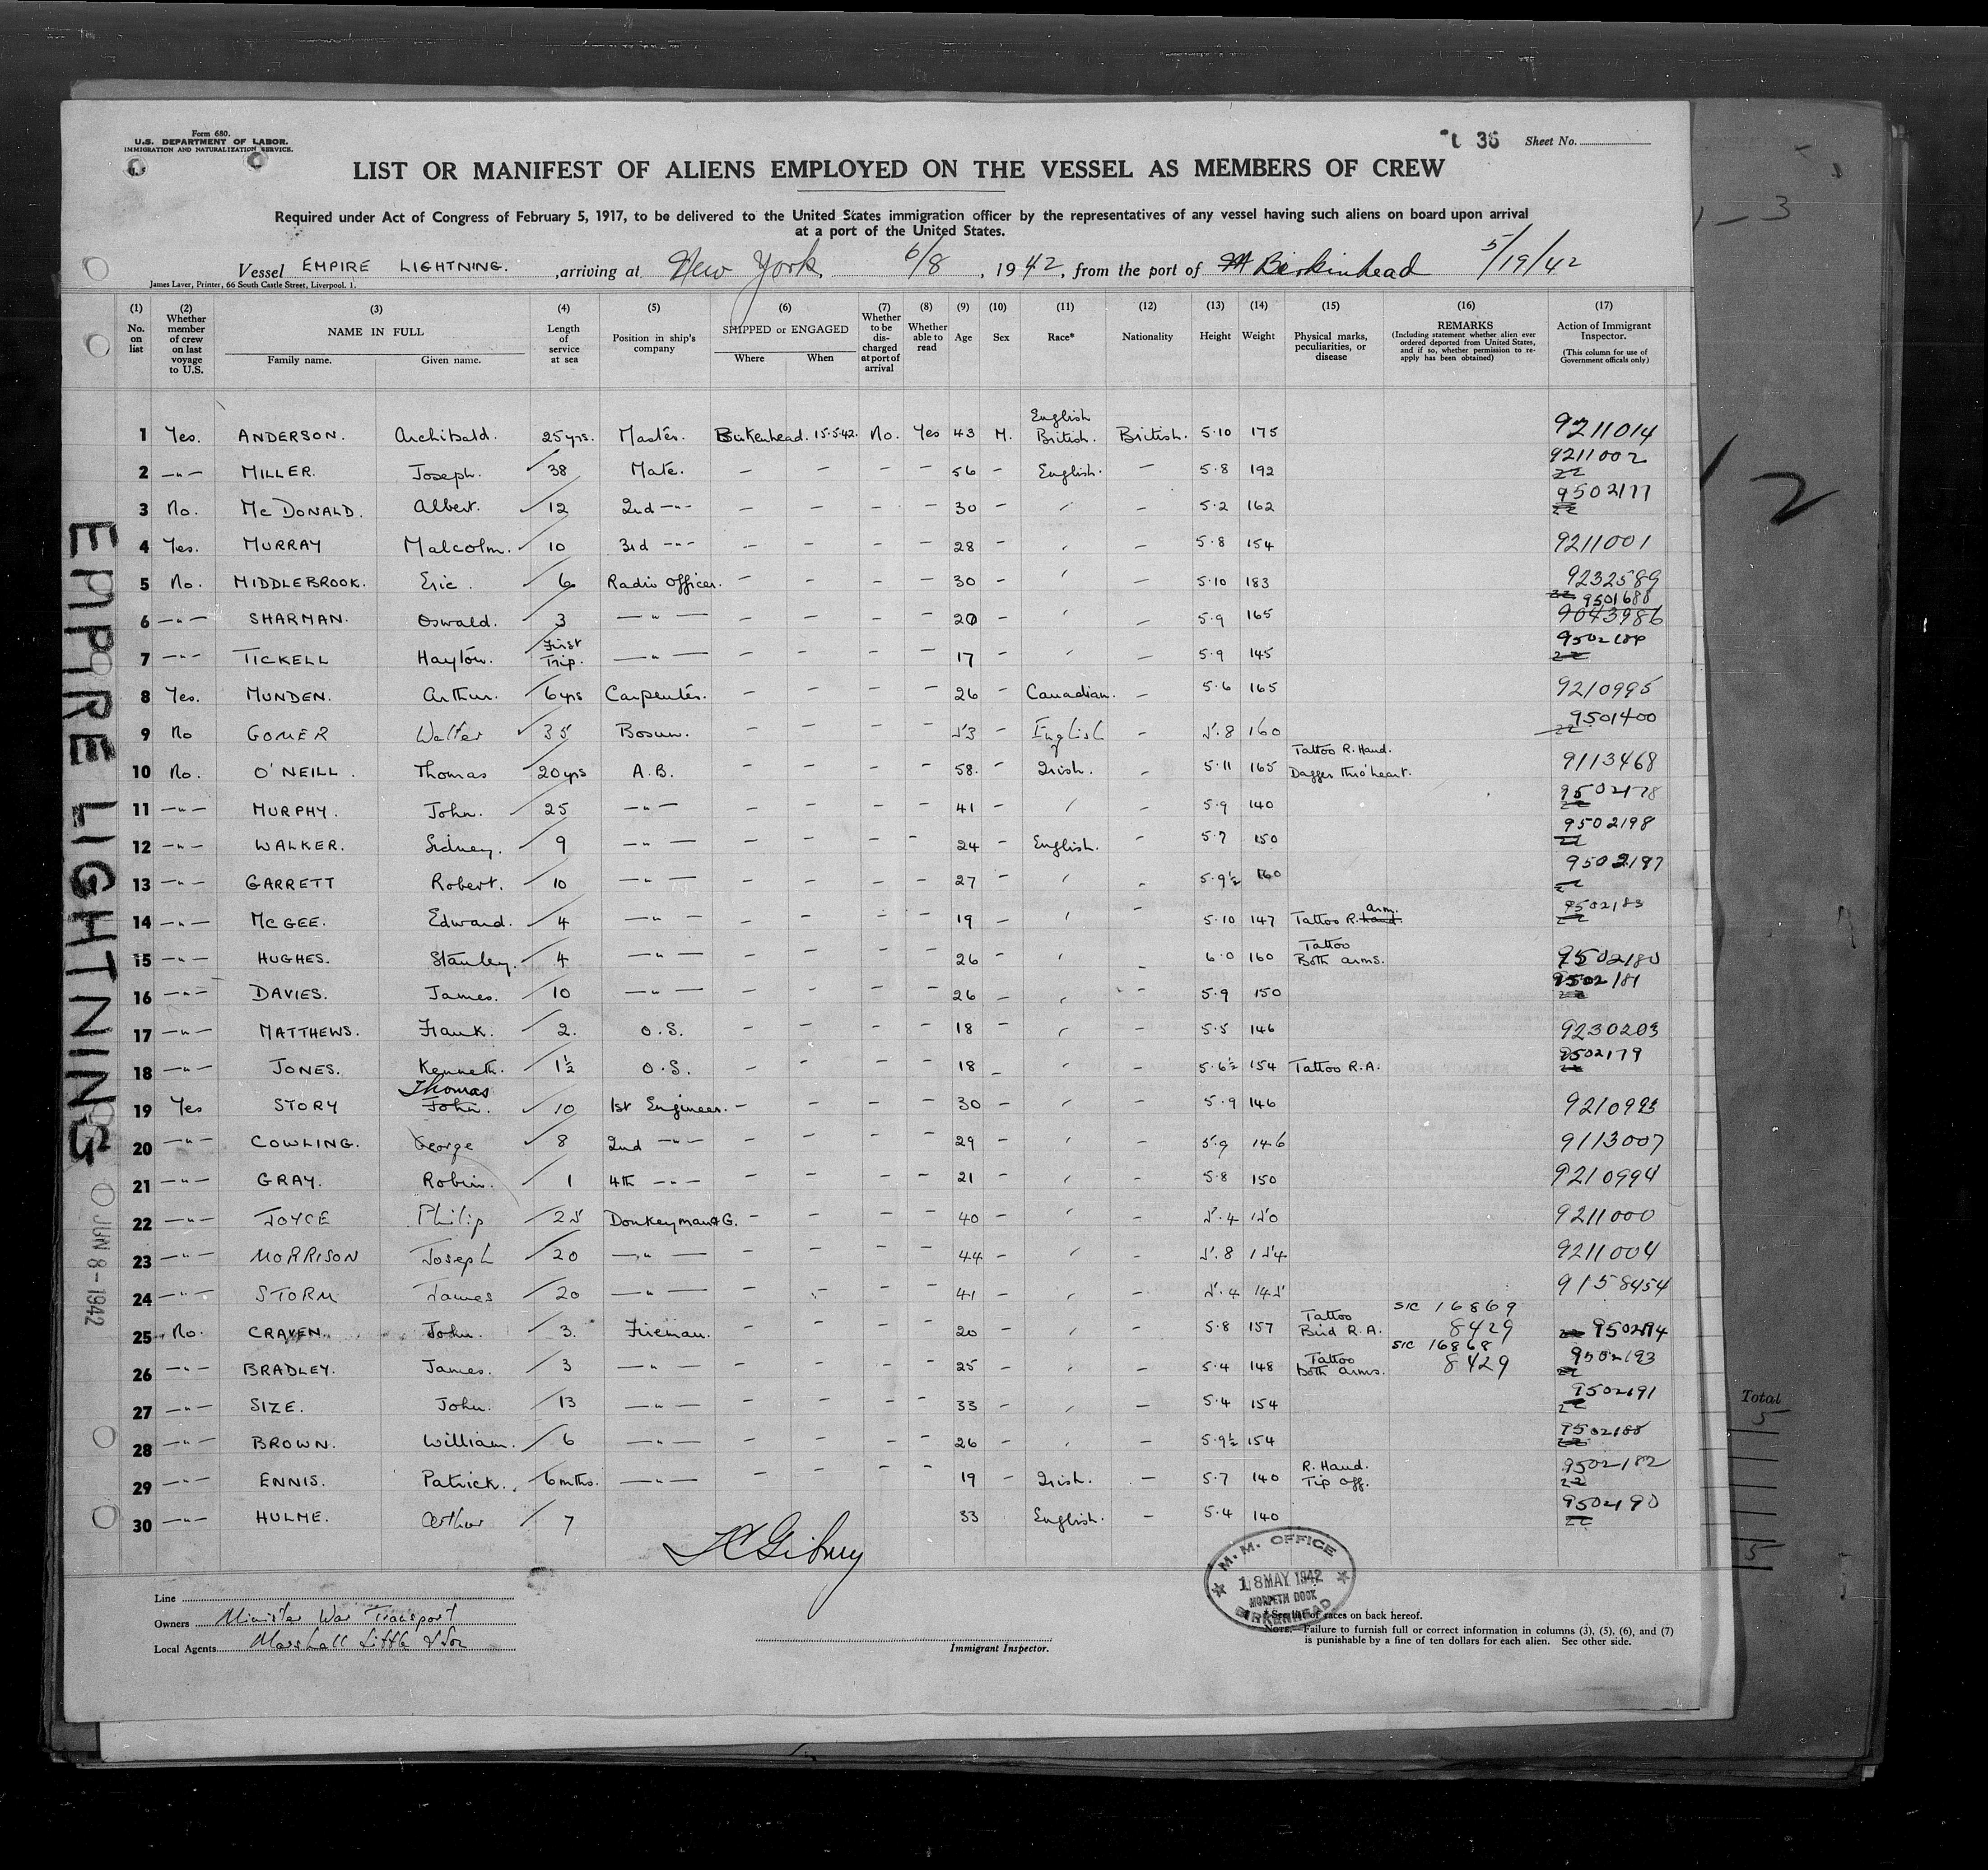 Form 680.
U.S. DEPARTMENT OF LABOR.
IMMIGRATION AND NATURALIZATION SERVICE.
36 Sheet No.
LIST OR MANIFEST OF ALIENS EMPLOYED ON THE VESSEL AS MEMBERS OF CREW
Required under Act of Congress of February 5, 1917, to be delivered to the United States immigration officer by the representatives of any vessel having such aliens on board upon arrival
at a port of the United States.
Vessel EMPIRE LIGHTNING. , arriving at New York 6/8 , 1942, from the port of Birkinhead 5/19/42
James Laver, Printer, 66 South Castle Street, Liverpool. 1.
(1) No. on list
(2) Whether member of crew on last voyage to U.S.
(3) NAME IN FULL Family name. Given name.
(4) Length of service at sea
(5) Position in ship's company
(6) SHIPPED or ENGAGED Where When
(7) Whether to be discharged at port of arrival
(8) Whether able to read
(9) Age
(10) Sex
(11) Race*
(12) Nationality
(13) Height
(14) Weight
(15) Physical marks, peculiarities, or disease
(16) REMARKS (Including statement whether alien ever ordered deported from United States, and if so, whether permission to re-apply has been obtained)
(17) Action of Immigrant Inspector. (This column for use of Government officials only)
1 Yes. ANDERSON. Archibald. 25 yrs. Master. Birkenhead. 15.5.42. No. Yes 43 M. English British. British. 5.10 175 9211014
2 —"— MILLER. Joseph. 38 Mate. — — — — 56 — English. — 5.8 192 9211002
3 No. McDONALD. Albert. 12 2nd —"— — — — — 30 — " — 5.2 162 9502177
4 Yes. MURRAY Malcolm. 10 3rd —"— — — — — 28 — " — 5.8 154 9211001
5 No. MIDDLEBROOK. Eric. 6 Radio Officer. — — — — 30 — " — 5.10 183 9232589
6 —"— SHARMAN. Oswald. 3 —"— — — — — 20 — " — 5.9 165 9501688 9043986
7 —"— TICKELL Hayton. First Trip. —"— — — — — 17 — " — 5.9 145 9502184
8 Yes. MUNDEN. Arthur. 6 yrs Carpenter. — — — — 26 — Canadian. — 5.6 165 9210995
9 No GOMER Walter 35 Bosun. — — — — 53 — English — 5.8 160 9501400
10 No. O'NEILL. Thomas 20 yrs A.B. — — — — 58. — Irish. — 5.11 165 Tattoo R. Hand. Dagger thro' heart. 9113468
11 —"— MURPHY. John. 25 —"— — — — — 41 — " — 5.9 140 9502178
12 —"— WALKER. Sidney. 9 —"— — — — — 24 — English. — 5.7 150 9502198
13 —"— GARRETT Robert. 10 —"— — — — — 27 — " — 5.9½ 160 9502197
14 —"— McGEE. Edward. 4 —"— — — — — 19 — " — 5.10 147 Tattoo R. hand. arm. 9502183
15 —"— HUGHES. Stanley. 4 —"— — — — — 26 — " — 6.0 160 Tattoo Both arms. 9502180
16 —"— DAVIES. James. 10 —"— — — — — 26 — " — 5.9 150 9502181
17 —"— MATTHEWS. Frank. 2. O.S. — — — — 18 — " — 5.5 146 9230203
18 —"— JONES. Kenneth. 1½ O.S. — — — — 18 — " — 5.6½ 154 Tattoo R.A. 9502179
19 Yes STORY John. Thomas 10 1st Engineer. — — — — 30 — " — 5.9 146 9210993
20 —"— COWLING. George 8 2nd —"— — — — — 29 — " — 5.9 146 9113007
21 —"— GRAY. Robin. 1 4th —"— — — — — 21 — " — 5.8 150 9210994
22 —"— JOYCE Philip 25 Donkeyman & G. — — — — 40 — " — 5.4 150 9211000
23 —"— MORRISON Joseph 20 —"— — — — — 44 — " — 5.8 154 9211004
24 —"— STORM James 20 —"— — — — — 41 — " — 5.4 145 9158454
25 No. CRAVEN. John. 3. Fireman. — — — — 20 — " — 5.8 157 Tattoo Bird R.A. S/C 16869 8429 9502194
26 —"— BRADLEY. James. 3 —"— — — — — 25 — " — 5.4 148 Tattoo both arms. S/C 16868 8429 9502193
27 —"— SIZE. John. 13 —"— — — — — 33 — " — 5.4 154 9502191
28 —"— BROWN. William. 6 —"— — — — — 26 — " — 5.9½ 154 9502188
29 —"— ENNIS. Patrick. 6 mths. —"— — — — — 19 — Irish. — 5.7 140 R. Hand. Tip off. 9502182
30 —"— HULME. Arthur 7 33 English. — 5.4 140 9502190
EMPIRE LIGHTNING
JUN 8 - 1942
M. M. OFFICE
18 MAY 1942
MORPETH DOCK
BIRKENHEAD
Line
Owners Minister War Transport
Local Agents Marshall Little & Son
Immigrant Inspector.
* See list of races on back hereof.
NOTE.—Failure to furnish full or correct information in columns (3), (5), (6), and (7)
is punishable by a fine of ten dollars for each alien. See other side.
3
2
Total
5
5